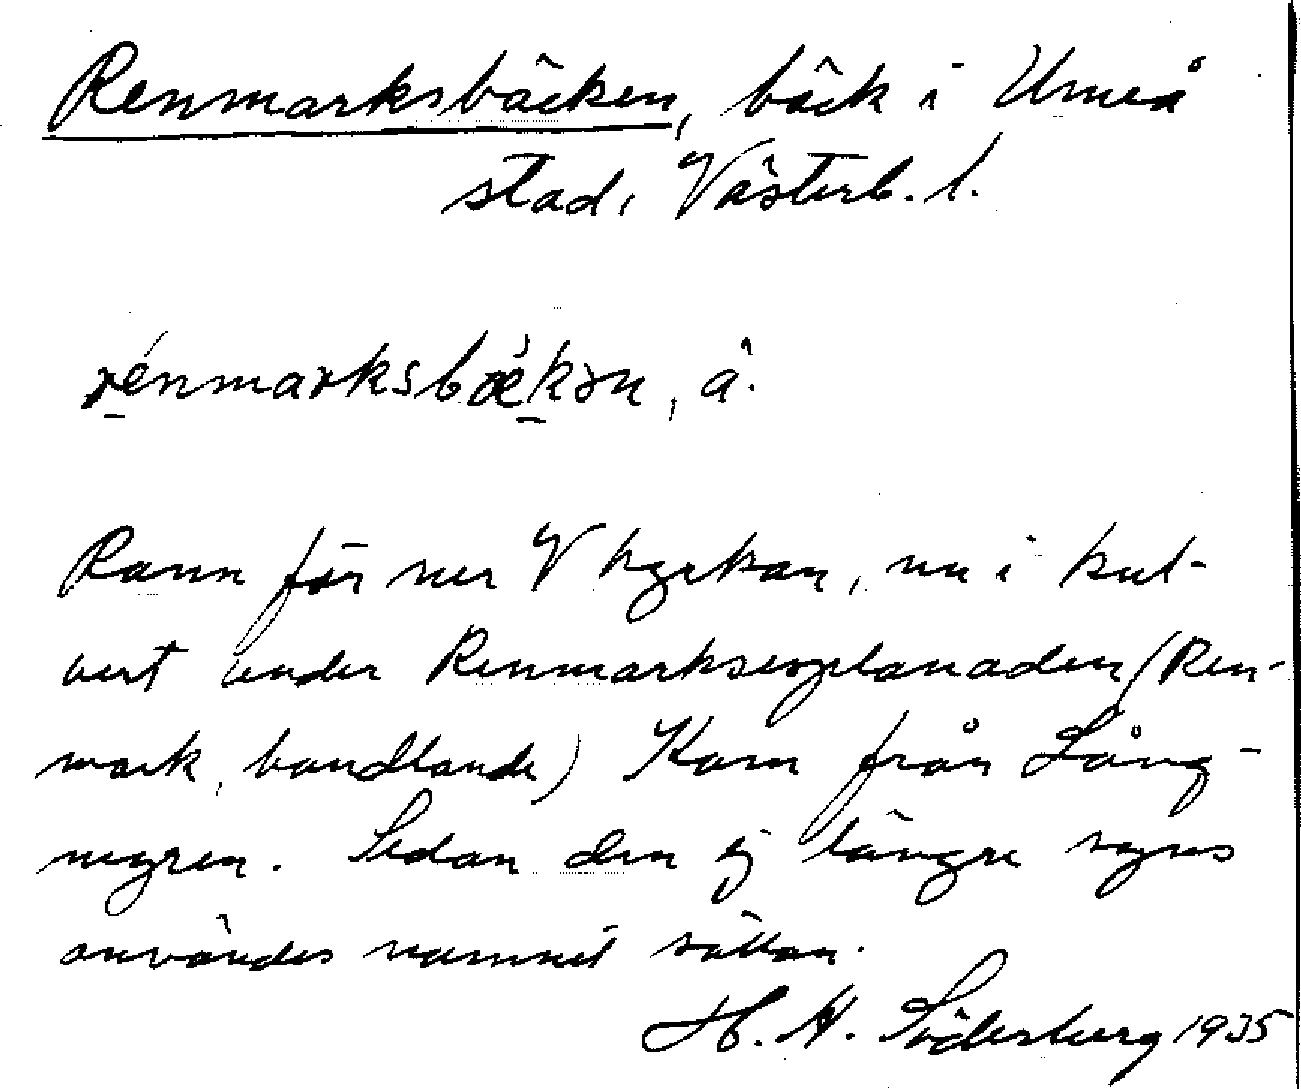 Renmarksbäcken, bäck i Umeå
stad, Västerb. l.
rénmarksbæ̀kən, å.
Rann förr ner V kyrkan, nu i kul-
vert under Renmarksesplanaden (Ren-
mark, handlande) Kom från Lång-
myren. Sedan den ej längre synes
användes namnet sällan.
H. W. Söderberg 1935